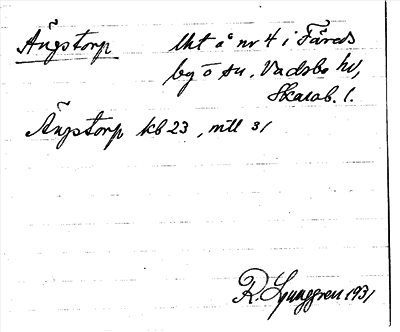 Ängstorp   Uht å nr 4 i Fåreds
by o sn, Vadsbo hd,
Skarab. l.
Ängstorp kb 23, mtl 31
R. Ljunggren 1931